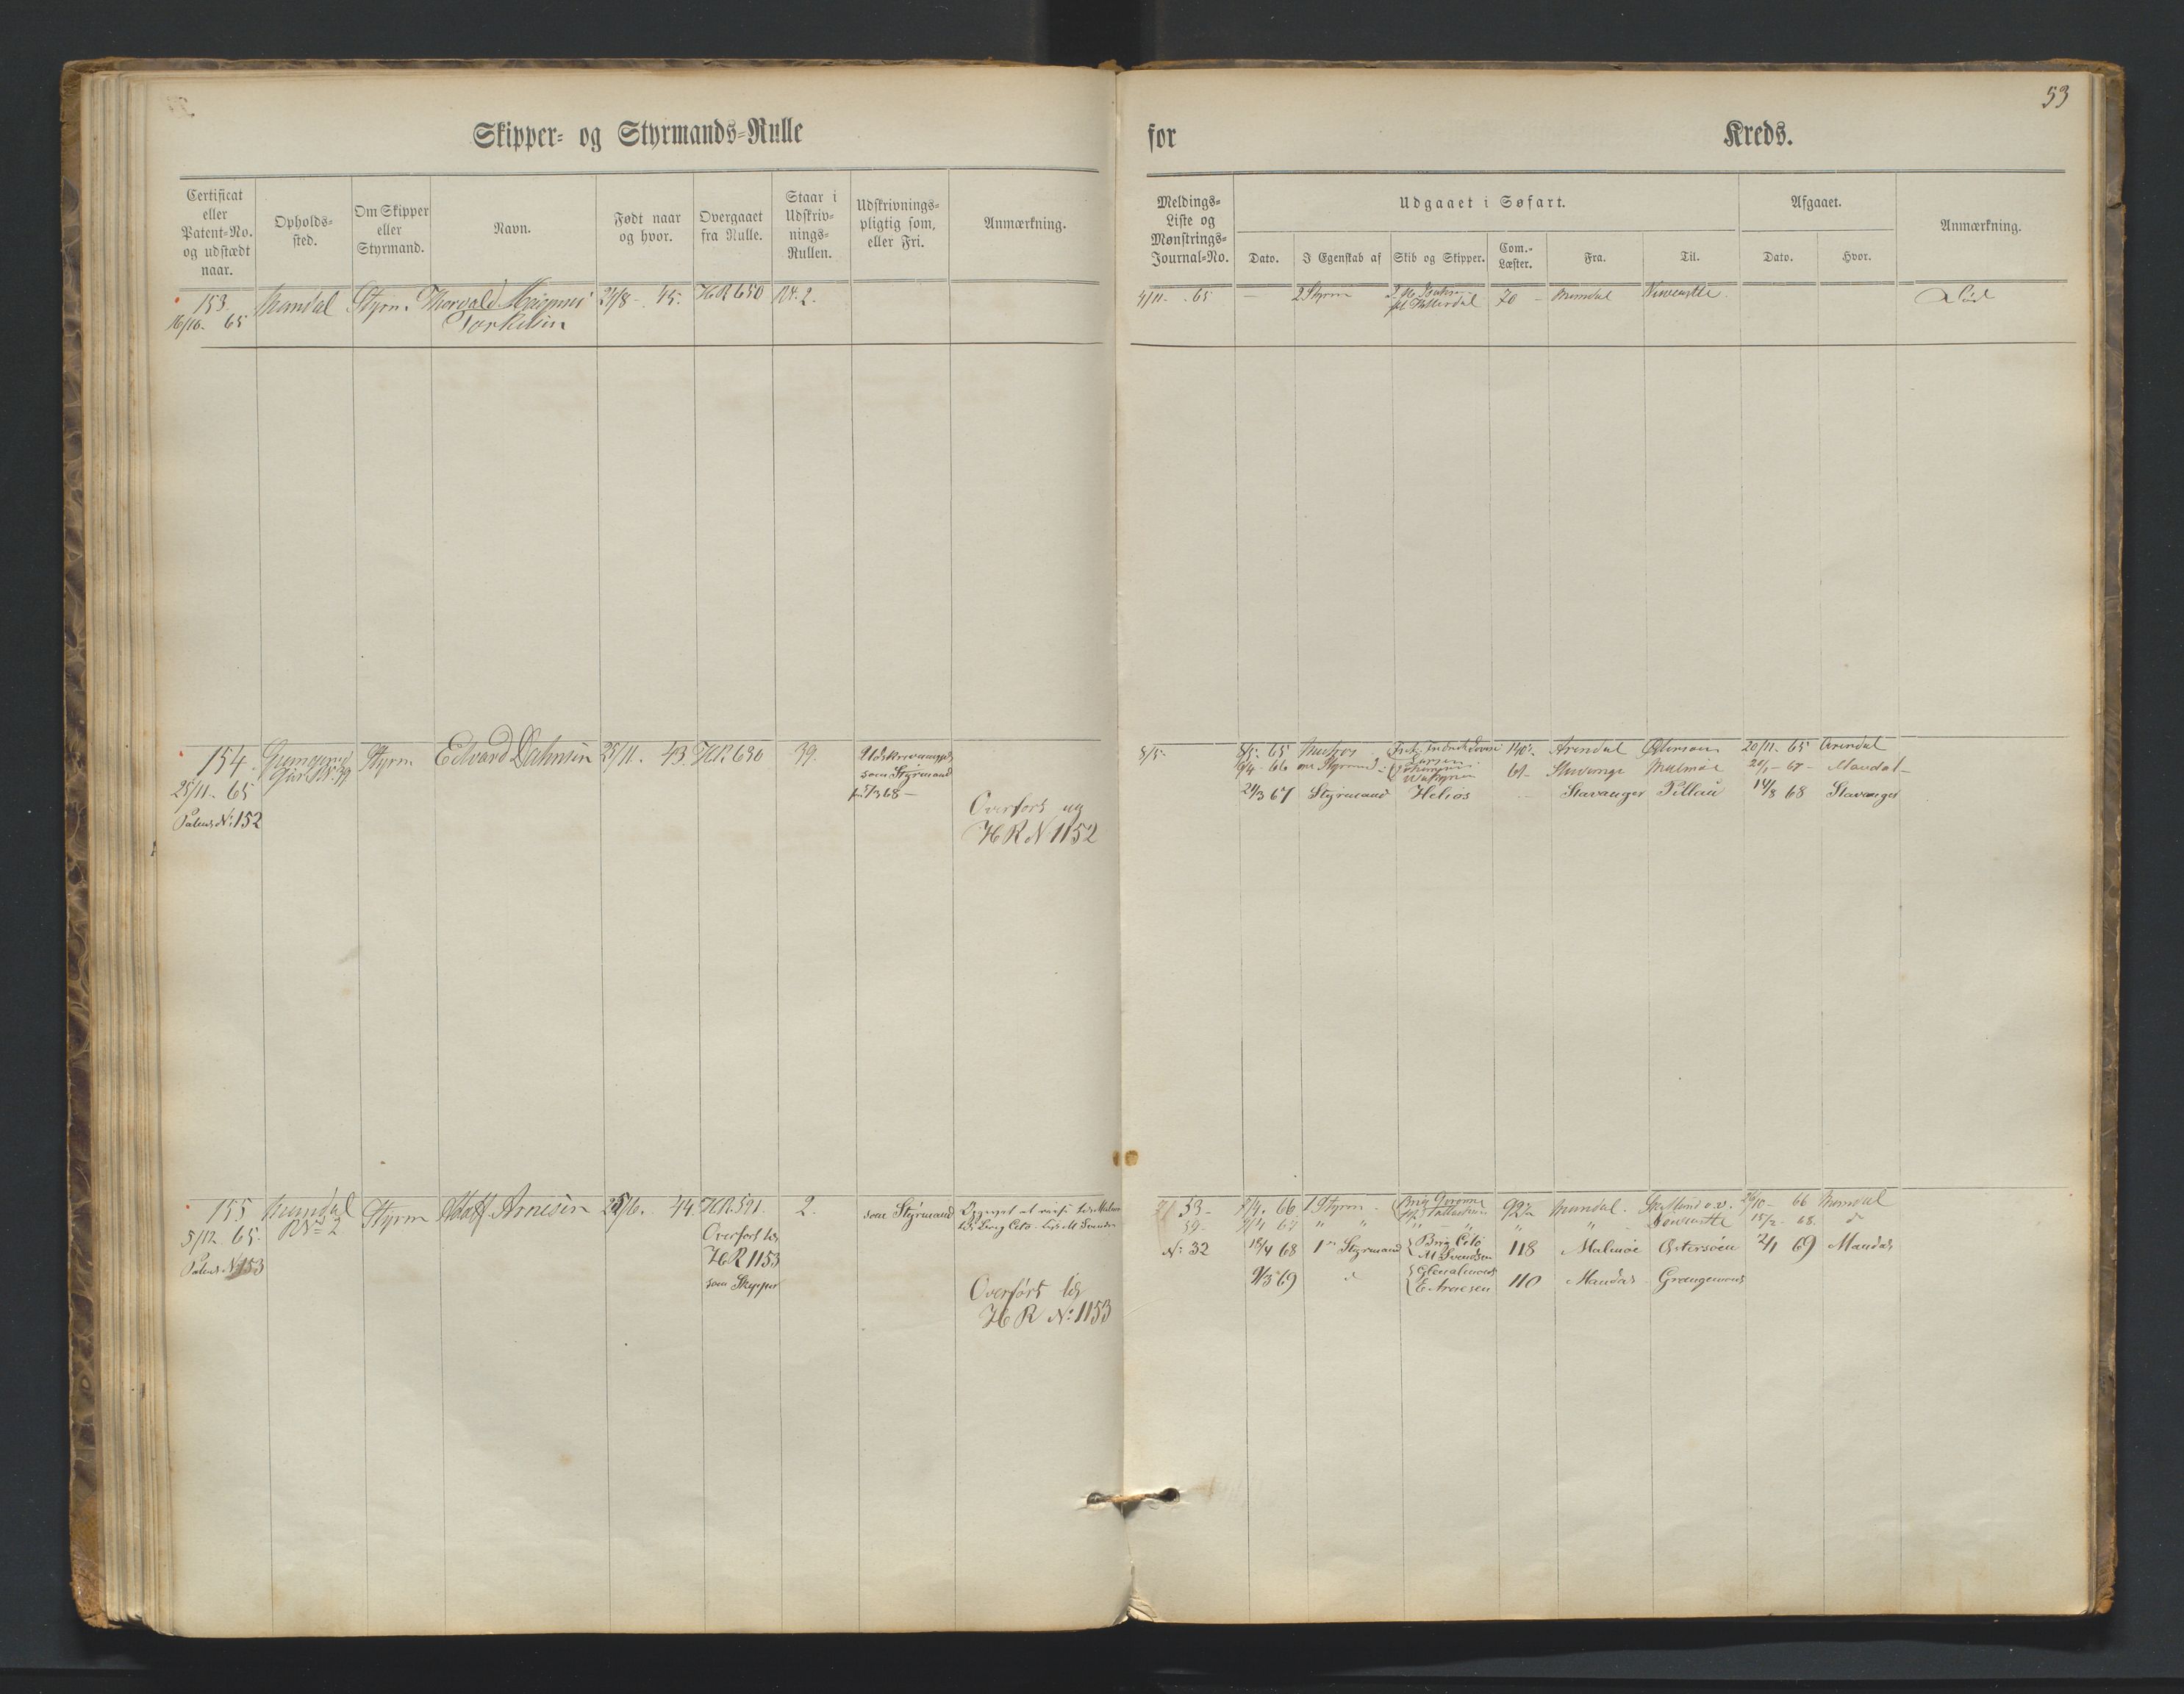 53
Skipper- og Styrmands-Rulle for Kreds.
Certificat eller Patent-No. og udstædt naar.
Opholds-sted.
Om Skipper eller Styrmand.
Navn.
Født naar og hvor.
Overgaaet fra Rulle.
Staar i Udskriv-nings-Rullen.
Udskrivnings-pligtig som, eller Fri.
Anmærkning.
Meldings-Liste og Mønstrings-Journal-No.
Udgaaet i Søfart.
Dato.
I Egenskab af
Skib og Skipper.
Com.-Læster.
Fra.
Til.
Afgaaet.
Dato.
Hvor.
Anmærkning.
153. Mandal Styrm. Thorvald Magnus 24/8 - 45. HR 650 No. 2.
16/10. 65 Torkelsen
4/11 - 65 — 2 Styrm 70 - Mandal Newcastle. Død
154. Styrm Edvard Dahnsen 25/11. 43. HR. 630 39.
25/11. 65
Patent No: 152
som Styrmand
68 —
Overført
HR N 1152
8/5- 65 Arendal Østersøen 20/11. 65 Arendal
9/4 - 66 Styrmand Stavanger Malmøe 67 - Mandal -
21/3 67 Styrmand Helios Stavanger Pillau 14/8 68 Stavanger
155 Mandal Styrm Adolf Arnesen 44. HR. 591. 2. som Styrmand
5/12. 65. No 2
Patent No 153
Overført til
HR 1153
som Skipper
Overført til
HR No: 1153
53 - 7/4. 66 1 Styrm. Brig 92½ Mandal. 66 Mandal
59 - 67 " " " " " " Newcastle 15/2 - 68. d
No: 32 18/4 68 1ste Styrmand Brig Cito M Svendsen 118 Malmøe Østersøen 2/1 69 Mandal
9/3 69 d Glenalmond E Arnesen 110 Mandal Grangemouth